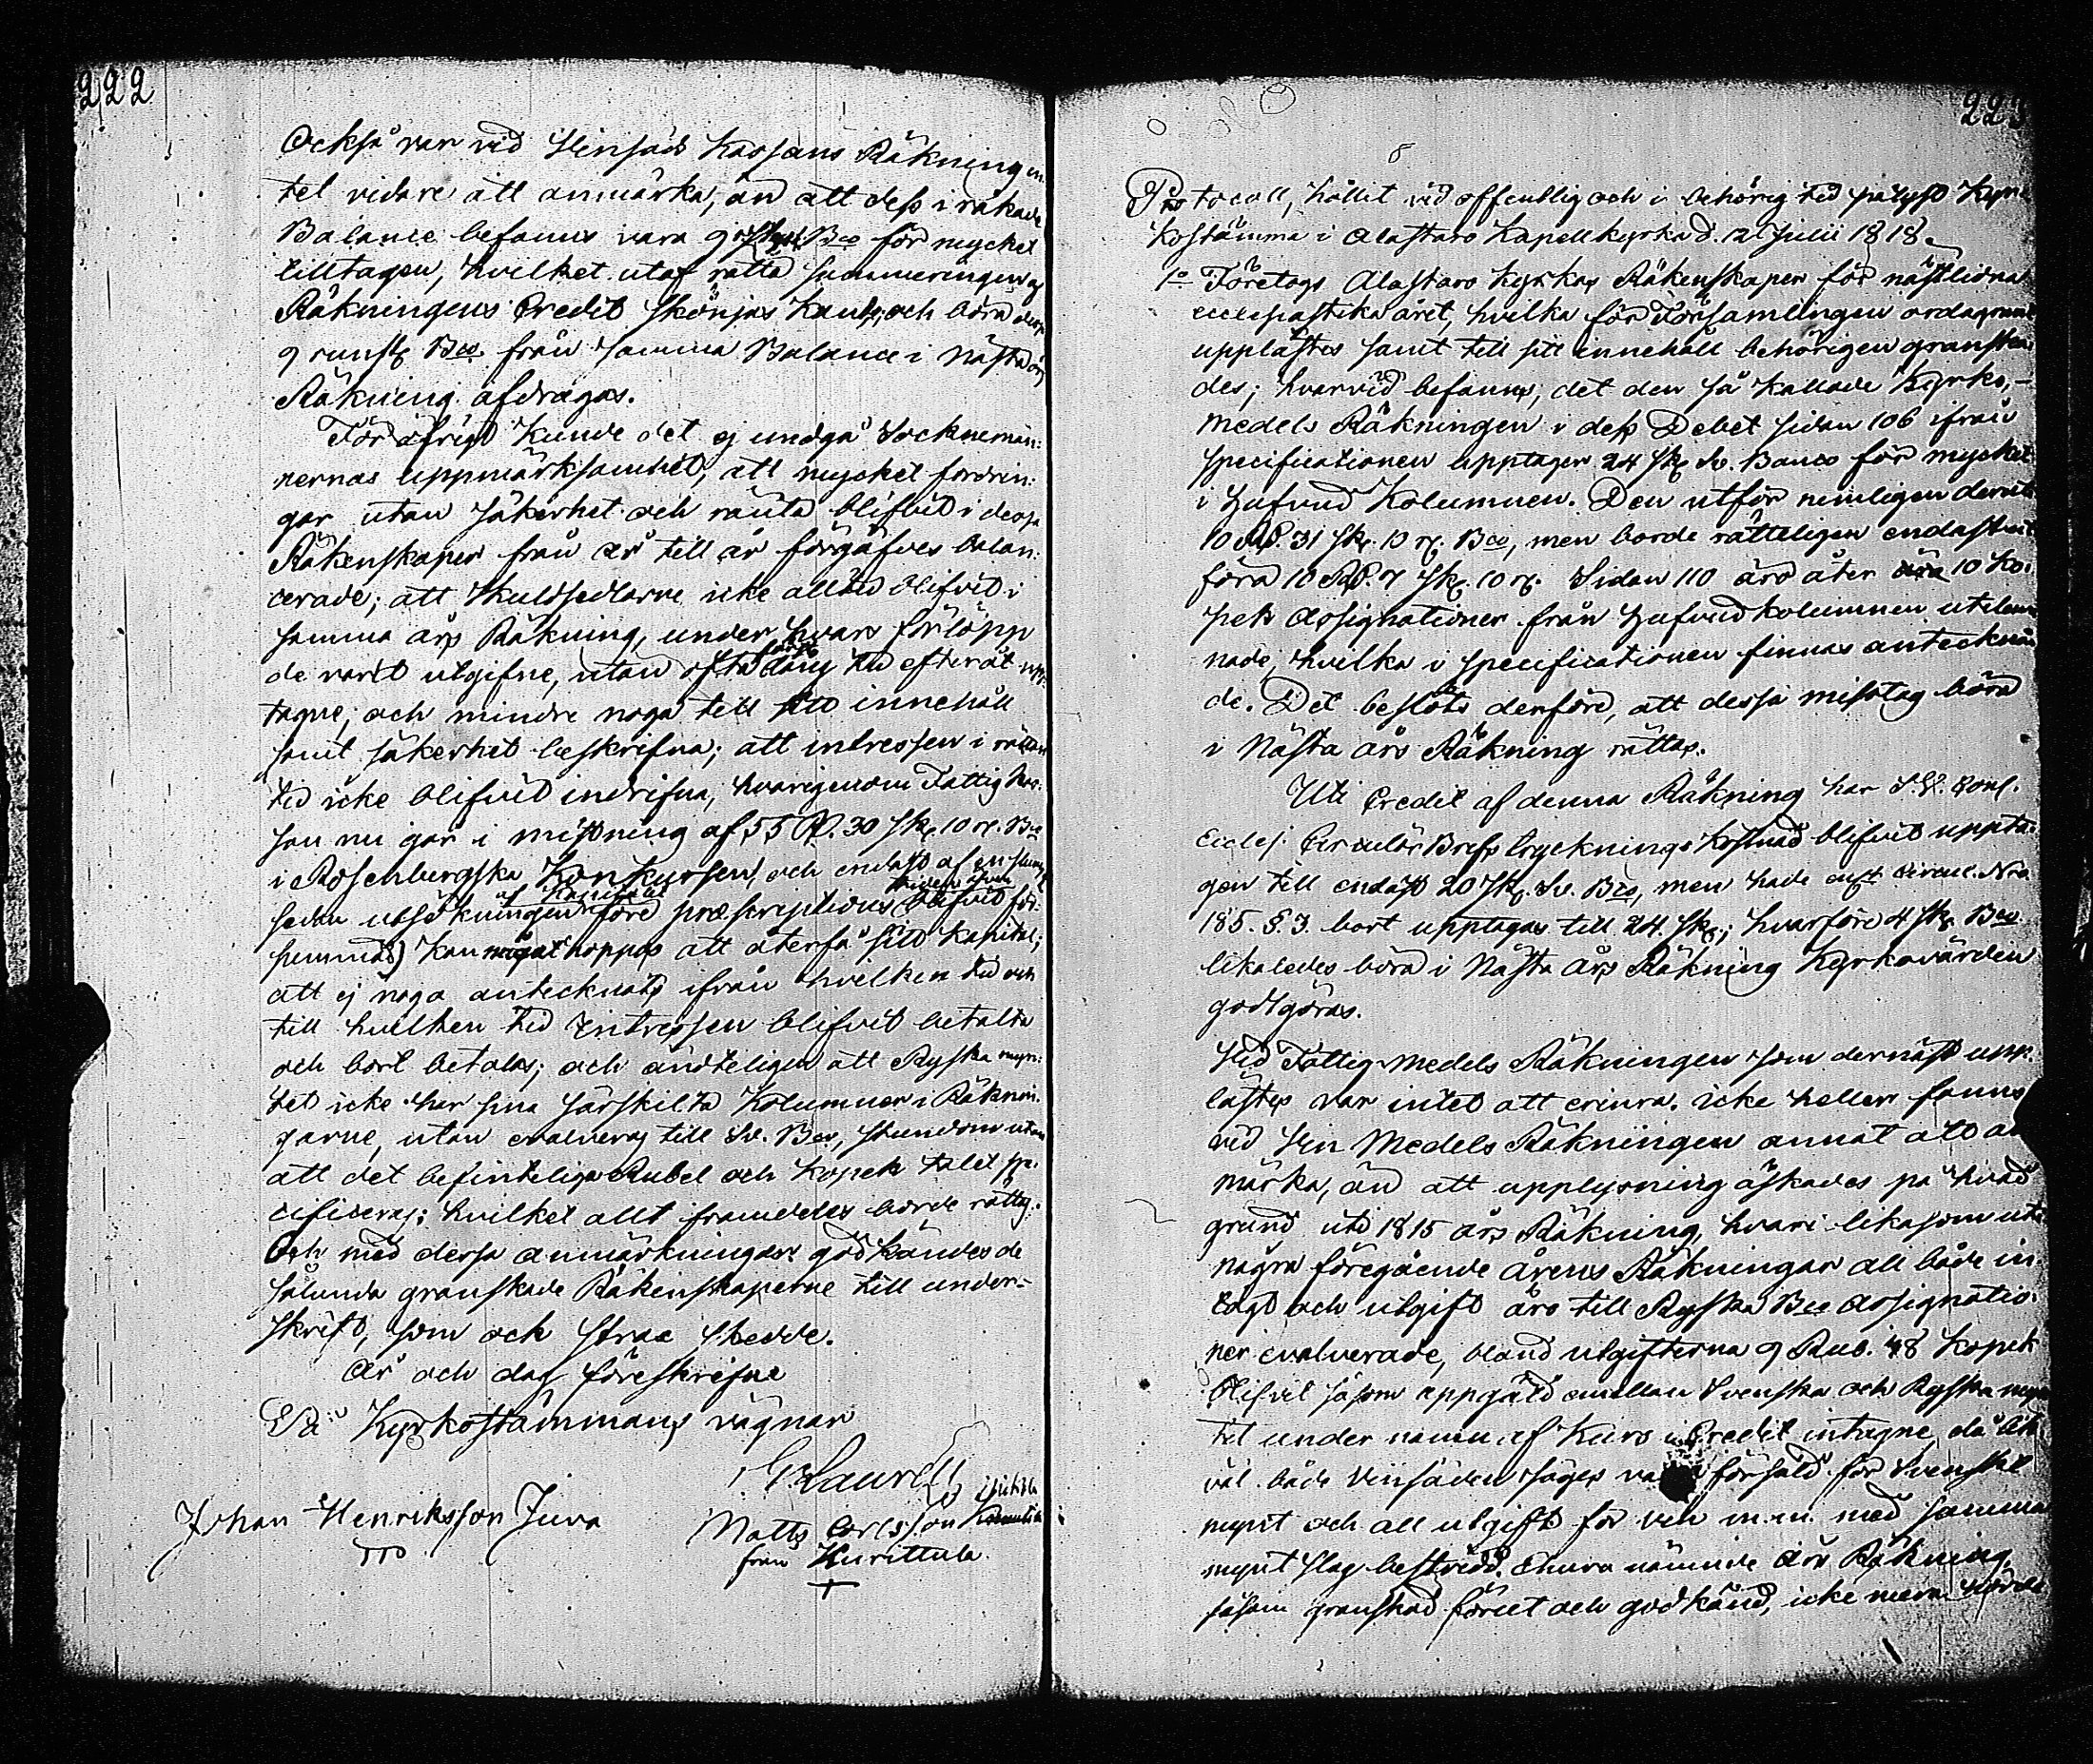 222
Också var vid Vinsäds Kassans Räkning in
tet vidare att anmärka, än att dess i råkade
Balance befanns vara 9 Bco för mycket
tilltagen, hvilket utaf rätta summeringen af
Räkningens Credit skönjas kande, och böra dessa
9 runst. Bco. från samma Balance i nästa års
Räkning afdragas.
För öfrigt kunde det ej undgå Sockneman:
nernas uppmärksamhet, att mycket fordrin:
gar utan säkerhet och ränta blifvit i dessa
Räkenskaper från år till år förgäfves balan:
cerade; att Skuldsedlarne icke alltid blifvit i
samma års Räkning, under hvars förlöpp
de varit utgifne, utan ofta lång tid efteråt upp:
tagne, och mindre noga till sitt innehåll
samt säkerhet beskrifna; att intressen i rättan
tid icke blifvit indrifna, hvarigenom Fattig kas:
san nu går i mistning af 55 Rd. 30 sk. 10 r. Bco
i Rosenbergska Konkursen, och endast af en slump
sedan utsökningen af Kapitalet före præscriptions tiden blifvit för:
summad) kan hoppas att återfå sitt Kapital;
att ej noga antecknats ifrån hvilken tid och
till hvilken tid Intressen blifvit betalta
och bort betalas; och ändteligen att Ryska myn:
tet icke har sina särskilta Kolumner i Räknin:
garne, utan evalveras till Sv. Bco, stundom utan
att det befinteliga Rubel och Kopek talet spe:
cificeras; hvilket allt framdeles borde rättas.
Och med dessa anmärkningar godkändes de
sålunda granskade Räkenskaperne till under-
skrift, som ock strax skedde.
År och dag föreskrifne
På Kyrkostämmans vägnar
G. Laurell
Johan Henriksson Juva
Matts Carlsson
från Hurittula
223
Protocoll, hållit vid offentlig och i behörig tid pålyst Kyr-
kostämma i Alastaro Kapell kyrka d. 12 Julii 1818.
1o Företogs Alastaro Kyrkas Räkenskaper för nästlidna
ecclesiastika året, hvilka för Församlingen ordagrant
upplästes samt till sitt innehåll behörigen granska-
des; hvarvid befanns, det den så kallade Kyrko-
medels Räkningen i dess Debet sidan 106 ifrån
specificationen upptager 24 sk. Sv. Banco för mycket
i Hufvud Kolumnen. Den utför nemligen derut
10 Rd. 31 sk. 10 r. Bco, men borde rätteligen endast ut
föra 10 Rd. 7 sk. 10 r. Sidan 110 äro åter 10 Ko:
pek Assignationer från Hufvud kolumnen utelem
nade, hvilka i specificationen finnas anteckna
de. Det beslöts derföre, att dessa misstag böra
i Nästa års Räkning rättas.
Uti Credit af denna Räkning har
Eccles. Circulär Brefs tryknings kostnad blifvit uppta:
gen till endast 20 sk. Sv. Bco, men hade enl. Circul. Nro
185. §. 3. bort upptagas till 24 sk.; hvarföre 4 sk. Bco
likaledes böra i Nästa års Räkning Kyrkovärden
godtgöras.
Vid Fattig-medels Räkningen som dernäst upp
lästes var intet att erinra. Icke heller fanns
vid Vin Medels Räkningen annat att an
märka, än att upplysning äskades på hvad
grund uti 1815 års Räkning, hvari likasom uti
några föregående årens Räkningar all både in
tägt och utgift äro till Ryska Bco Assignatio:
ner evalverade, bland utgifterna 9 Rub. 48 Kopek
blifvit såsom uppgäld emellan Svenska och Ryska myn
tet under namn af Kurs i Credit intagne, då lik
väl både Vinsäden säges vara försåld för Svenskt
mynt och all utgift för vin m.m. med samma
mynt slag bestridd. Ehuru nämnde års Räkning,
såsom granskad förut och godkänd, icke mera